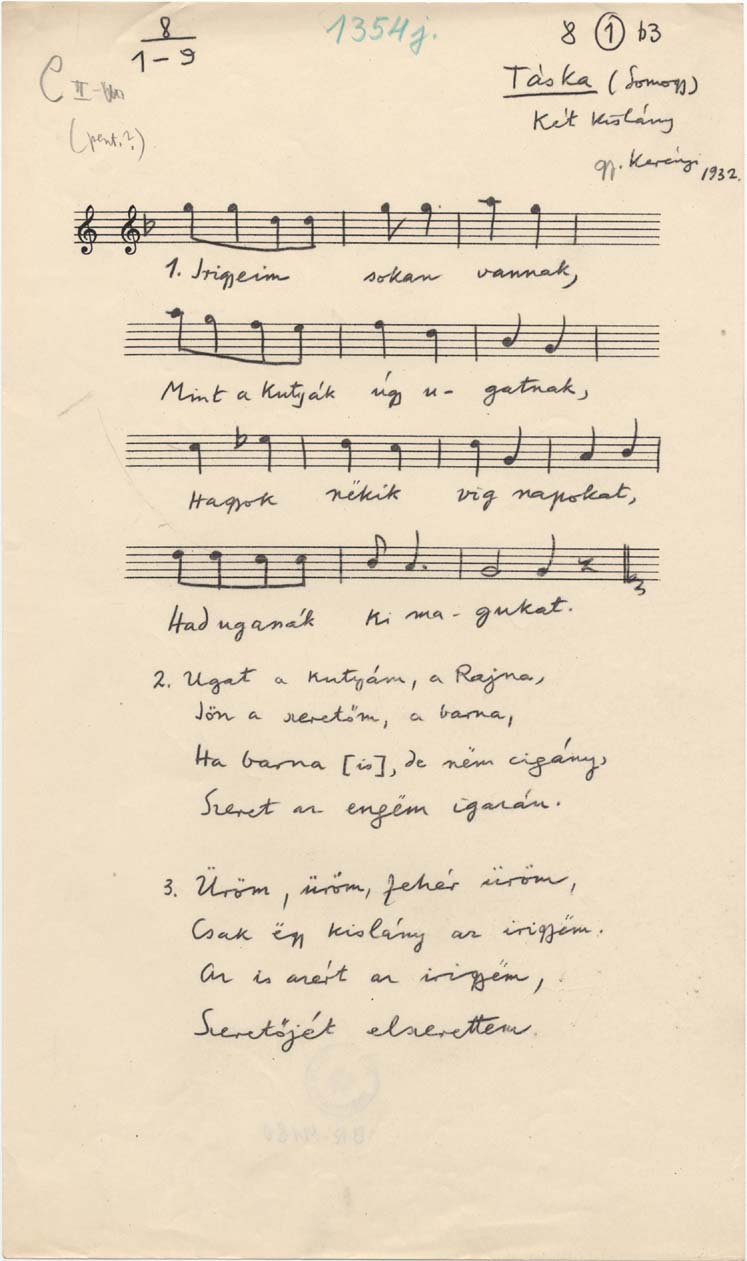 8
1-9
1354j.
8 ① b3
C II-
(pent.?)
Táska (Somogy)
Két kislány
gy. Kerényi 1932.
1. Irigyeim sokan vannak,
Mint a kutyák úgy u- gatnak,
Hagyok nékik vig napokat,
Had ugassák ki ma- gukat.
2. Ugat a kutyám, a Rajna,
Jön a szeretőm, a barna,
Ha barna [is], de ném cigány,
Szeret az engëm igazán.
3. Üröm, üröm, fehér üröm,
Csak ëgy kislány az irigyëm.
Az is azért az irigyëm,
Szeretőjét elszerettem.